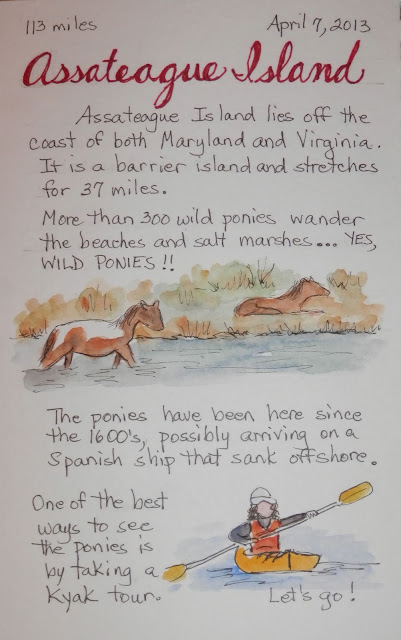 113 miles April 7, 2013
Assateague Island
Assateague Island lies off the
coast of both Maryland and Virginia.
It is a barrier island and stretches
for 37 miles.
More than 300 wild ponies wander
the beaches and salt marshes... YES,
WILD PONIES!!
The ponies have been here since
the 1600's, possibly arriving on a
Spanish ship that sank offshore.
One of the best
ways to see
the ponies is
by taking a
Kyak tour.
Let's go!